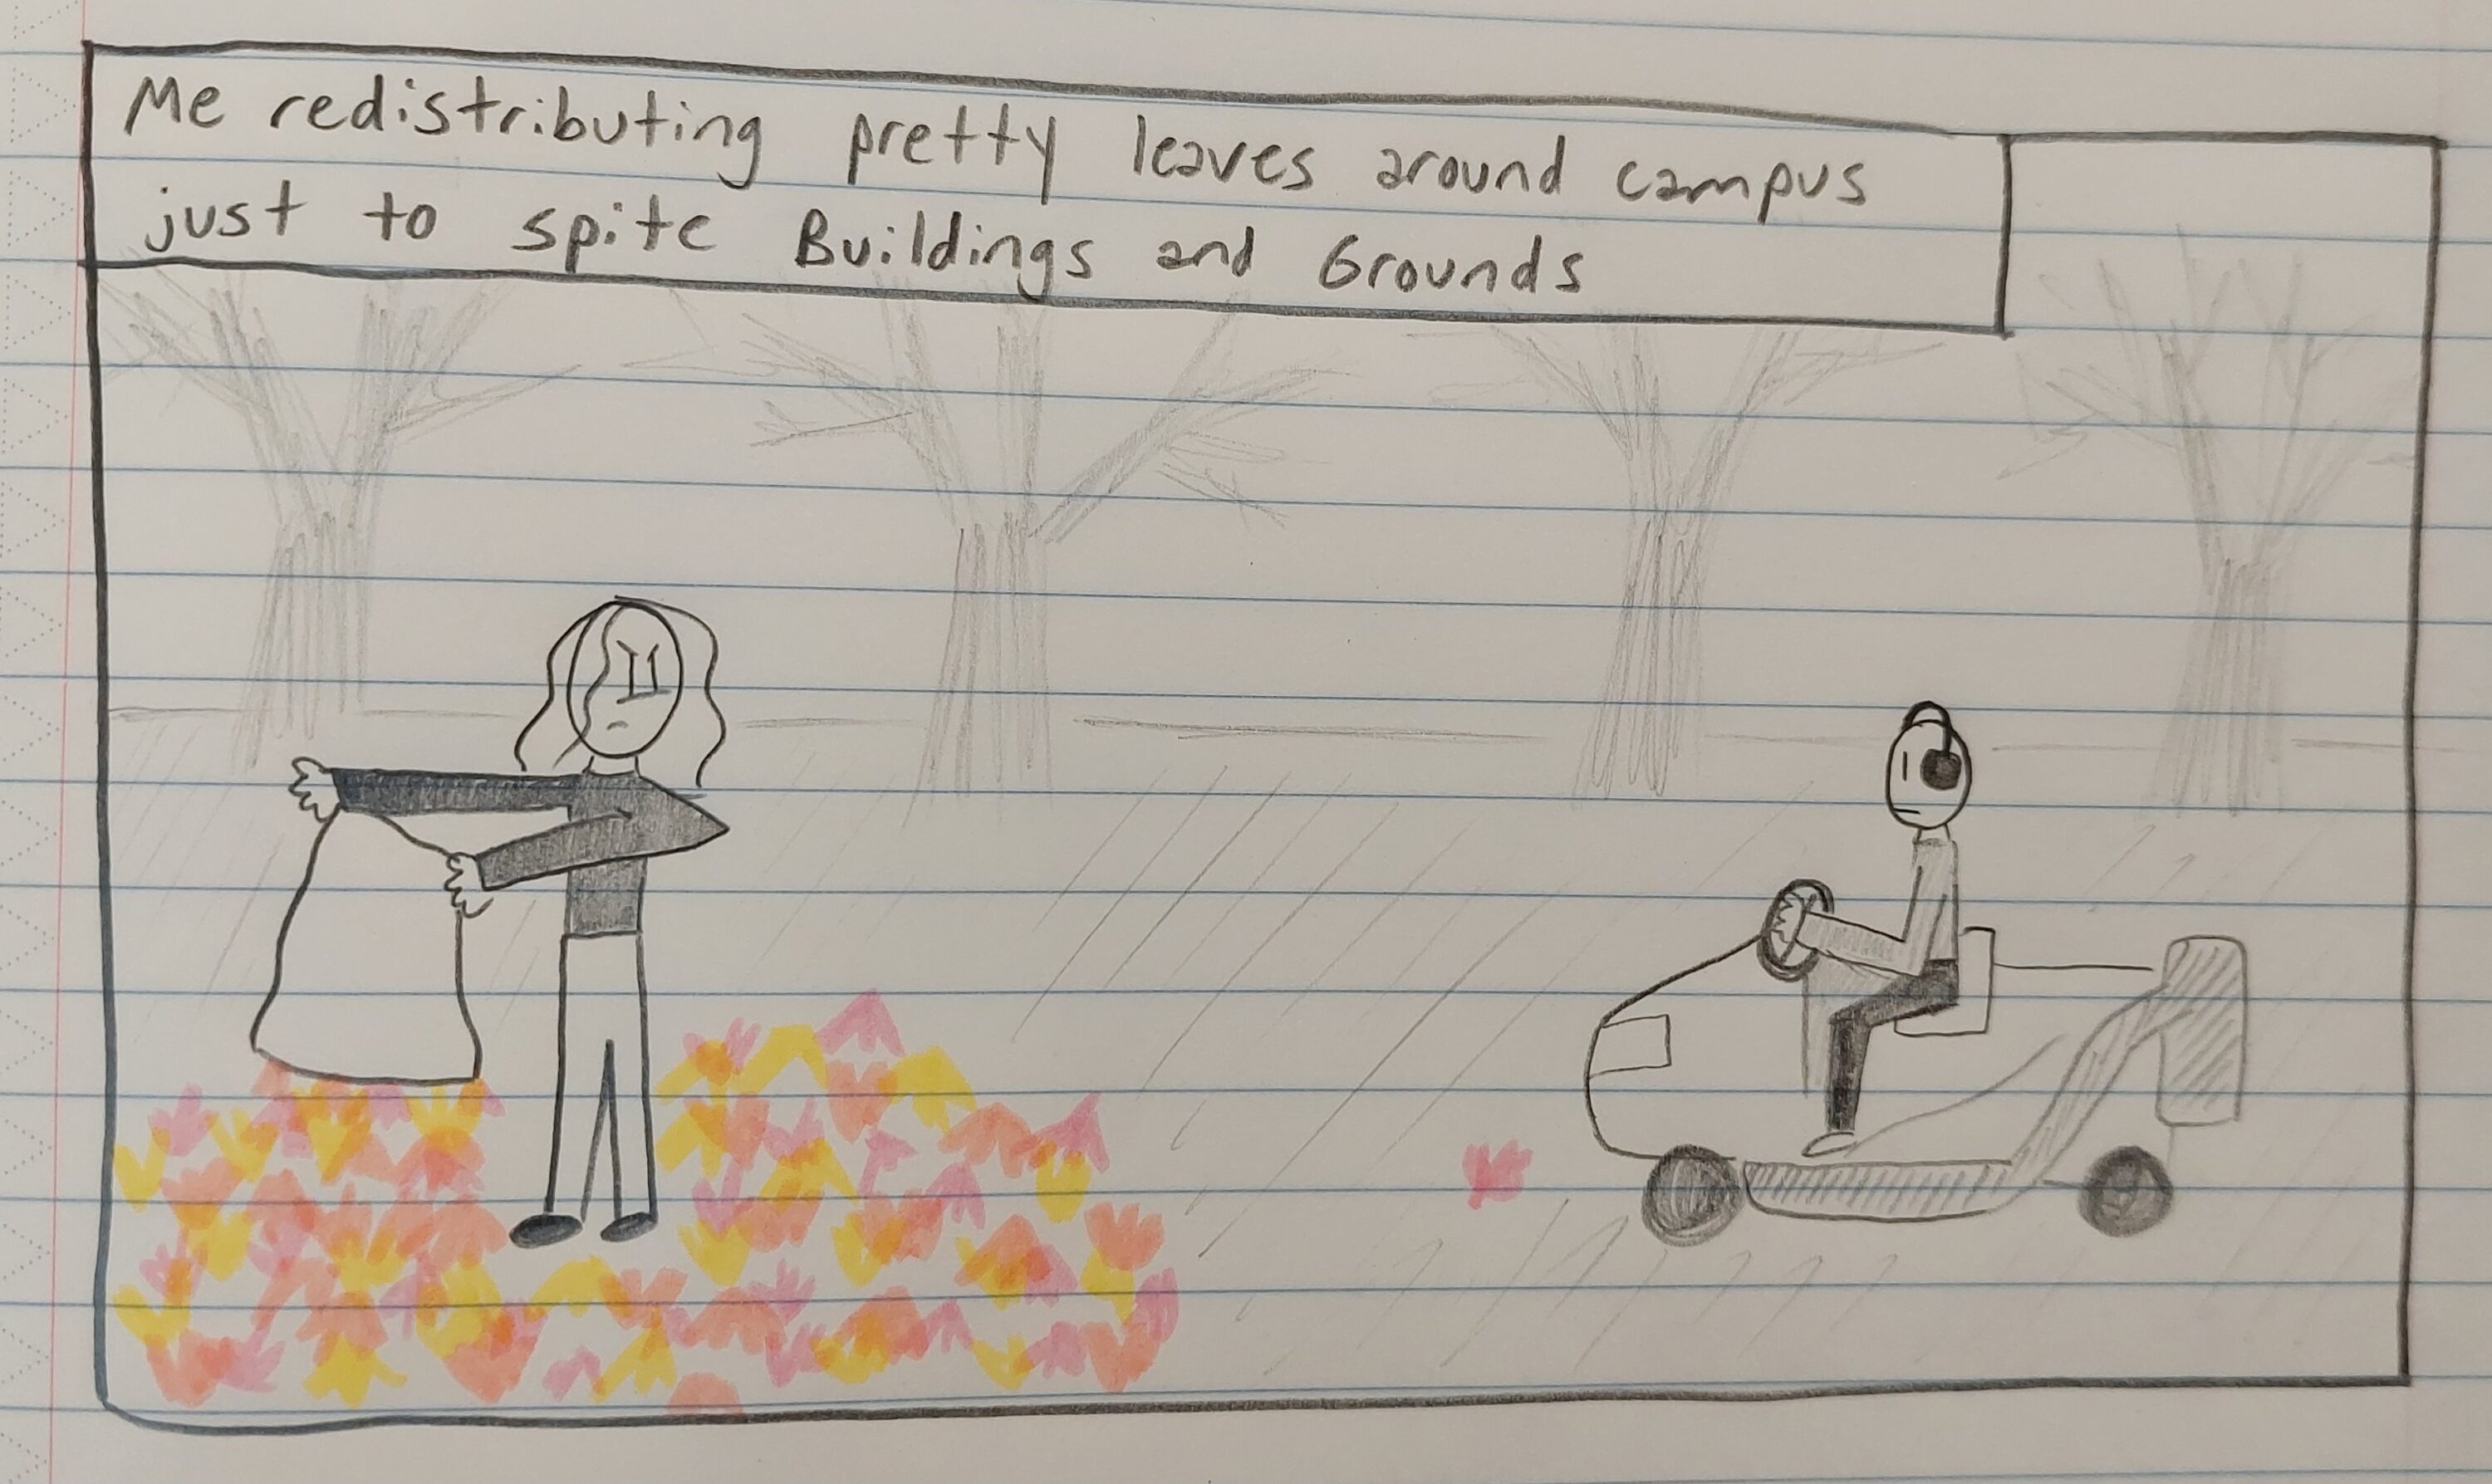 Me redistributing pretty leaves around campus
just to spite Buildings and Grounds